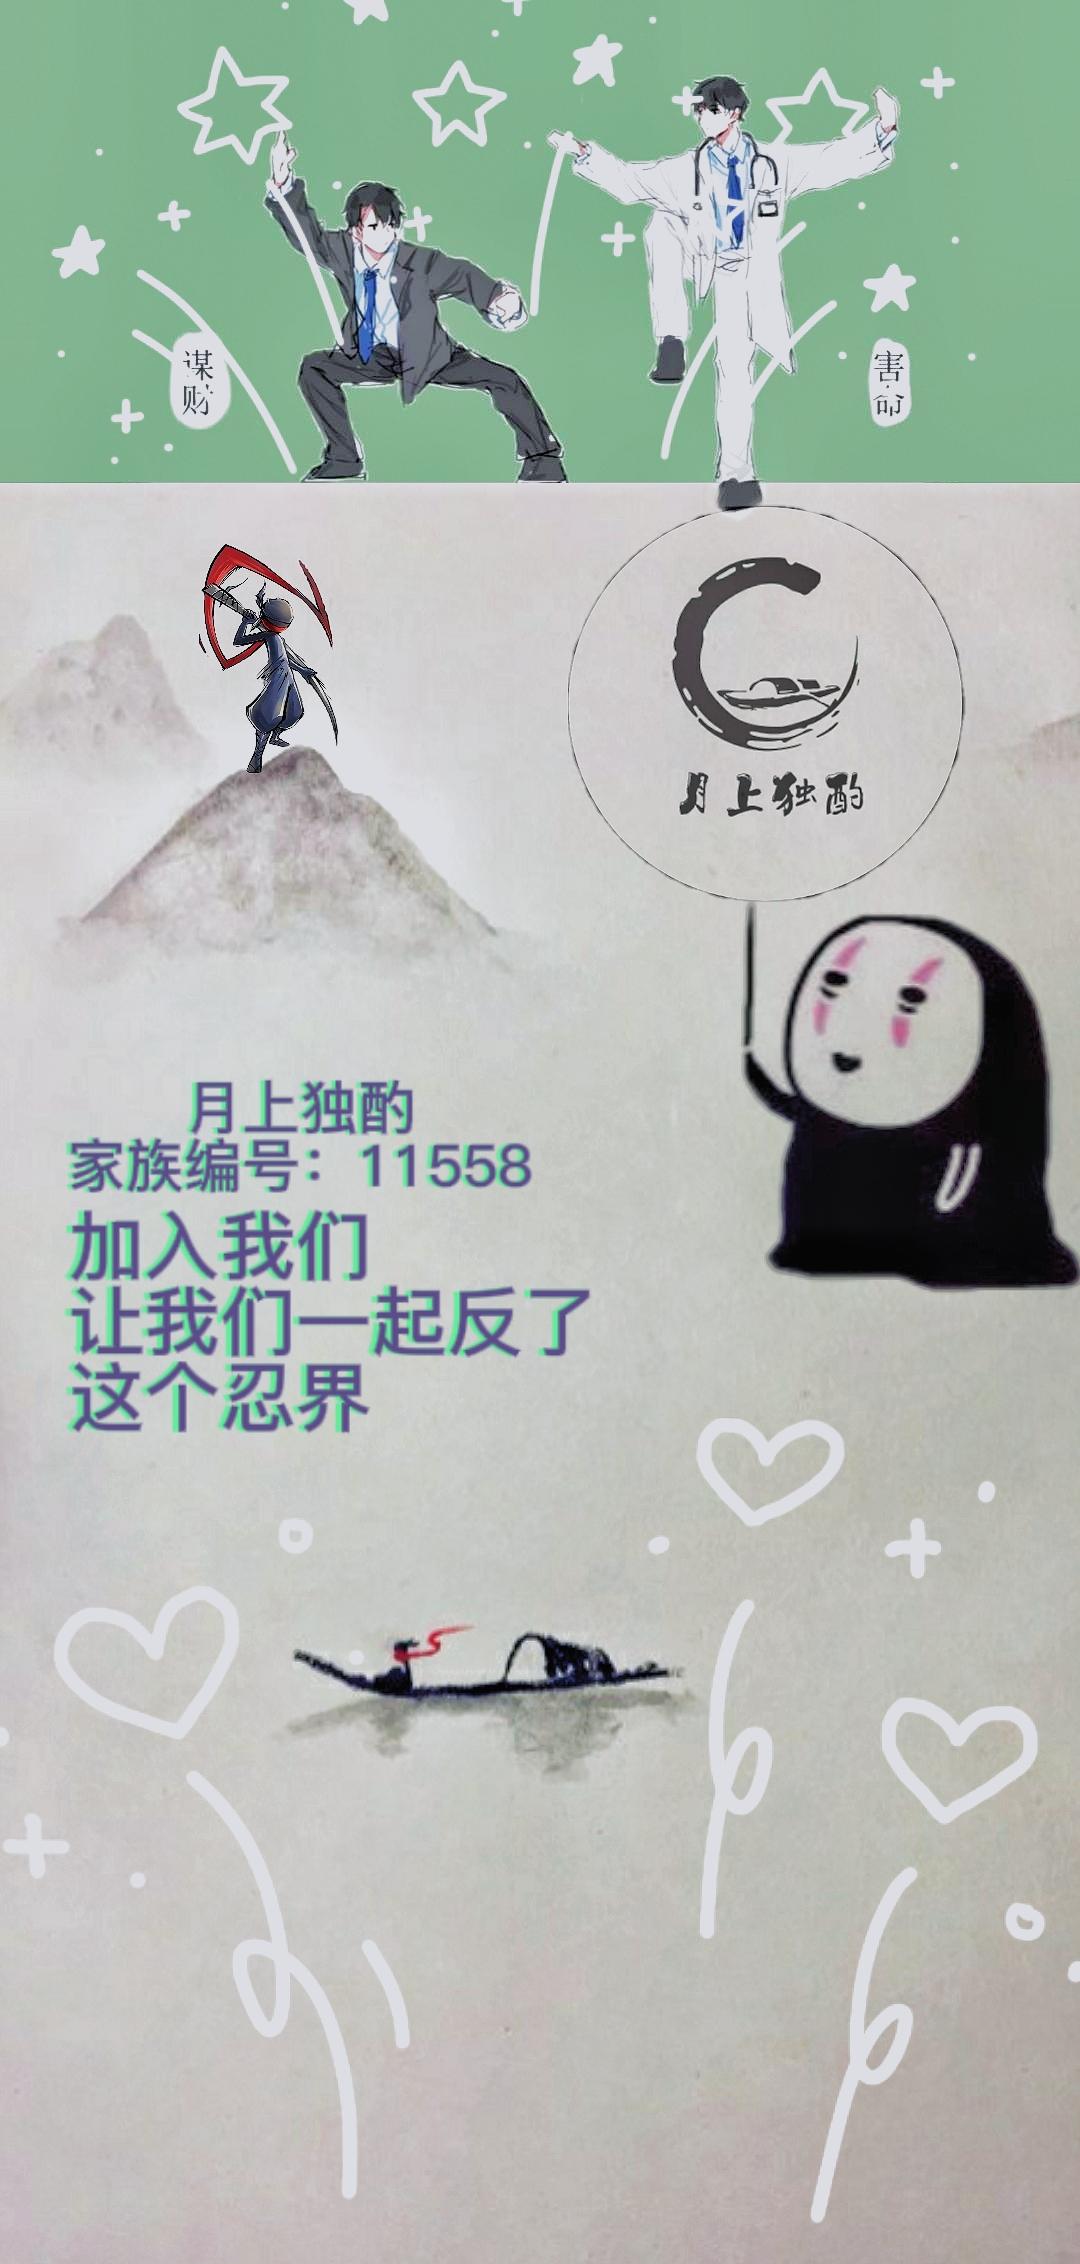 谋财
害命
月上独酌
月上独酌
家族编号：11558
加入我们
让我们一起反了
这个忍界